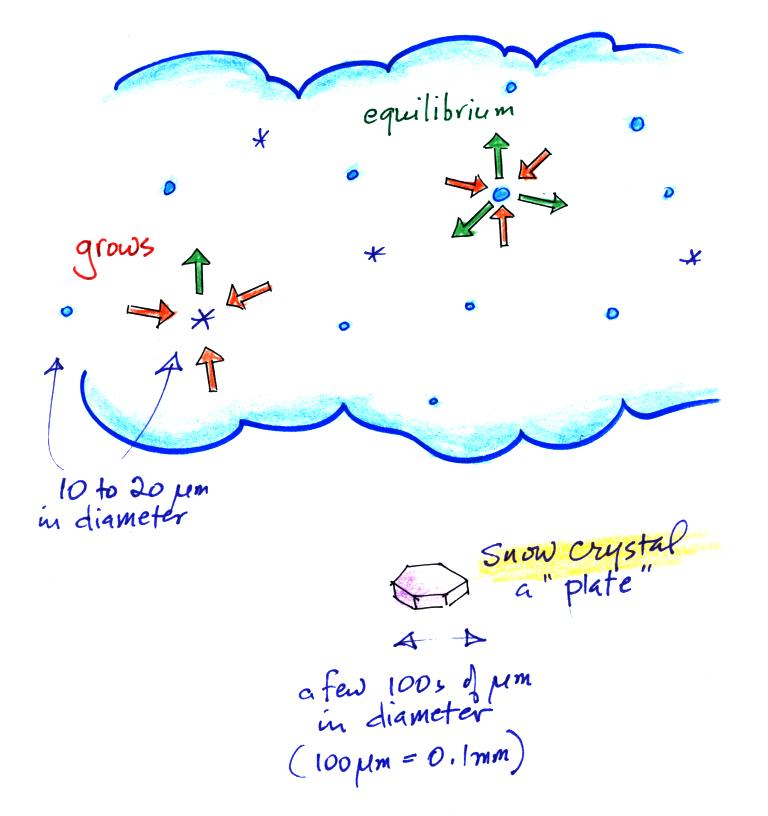 equilibrium
grows
10 to 20 μm
in diameter
Snow crystal
a "plate"
a few 100s of μm
in diameter
(100 μm = 0.1 mm)